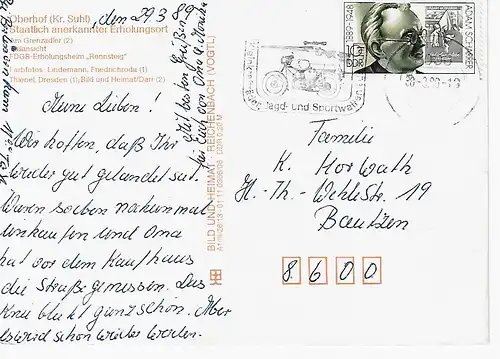 Oberhof (Kr. Suhl)
Staatlich anerkannter Erholungsort
Am Grenzadler (2)
FDGB-Erholungsheim „Rennsteig"
Farbfotos: Lindemann, Friedrichroda (1)
Thienel, Dresden (1); Bild und Heimat/Darr (2)
, den 29.3.89
Meine Lieben!
Wir hoffen, daß Ihr
wieder gut gelandet seid.
Waren soeben nochmal
einkaufen und Oma
hat vor dem Kaufhaus
die Straße gemessen. Das
Knie blutet ganz schön. Aber
es wird schon wieder werden.
Mit besten Grüßen
für Euch von Oma
BILD UND HEIMAT REICHENBACH (VOGTL)
Jagd- und Sportwaffen
ADAM SCHARRER
1889-1948
10
DDR
Familie
K. Horwath
H.-Th.-Wehle Str. 19
Bautzen
8600